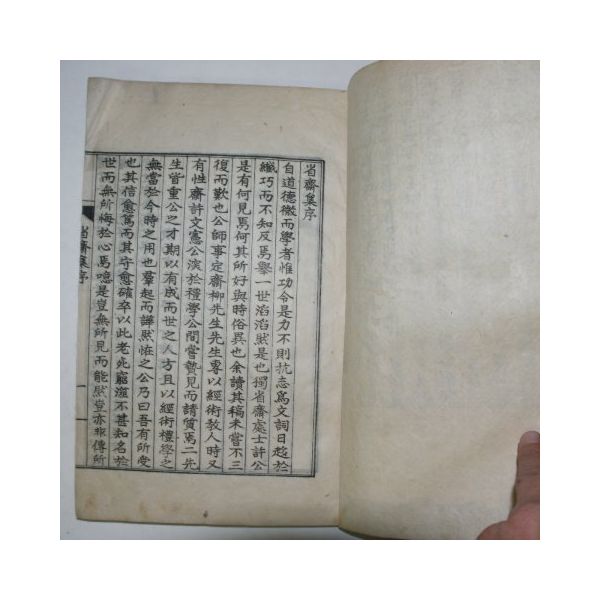 省齋集序
自道德微而學者惟功令是力不則抗志爲文詞日趍於
纖巧而不知反焉擧一世滔滔然是也獨省齋處士許公
是有何見焉何其所好與時俗異也余讀其稿未嘗不三
復而歎也公師事定齋柳先生先生專以經術敎人時又
有性齋許文憲公演於禮學公間嘗贄見而請質焉二先
生皆重公之才期以有成而世之人方且以經術禮學之
無當於今時之用也羣起而譁然恠之公乃曰吾有所受
也其信愈篤而其守愈確卒以此老死窮澨不甚知名於
世而無所悔於心焉噫是豈無所見而能然豈亦非傳所
省齋集序